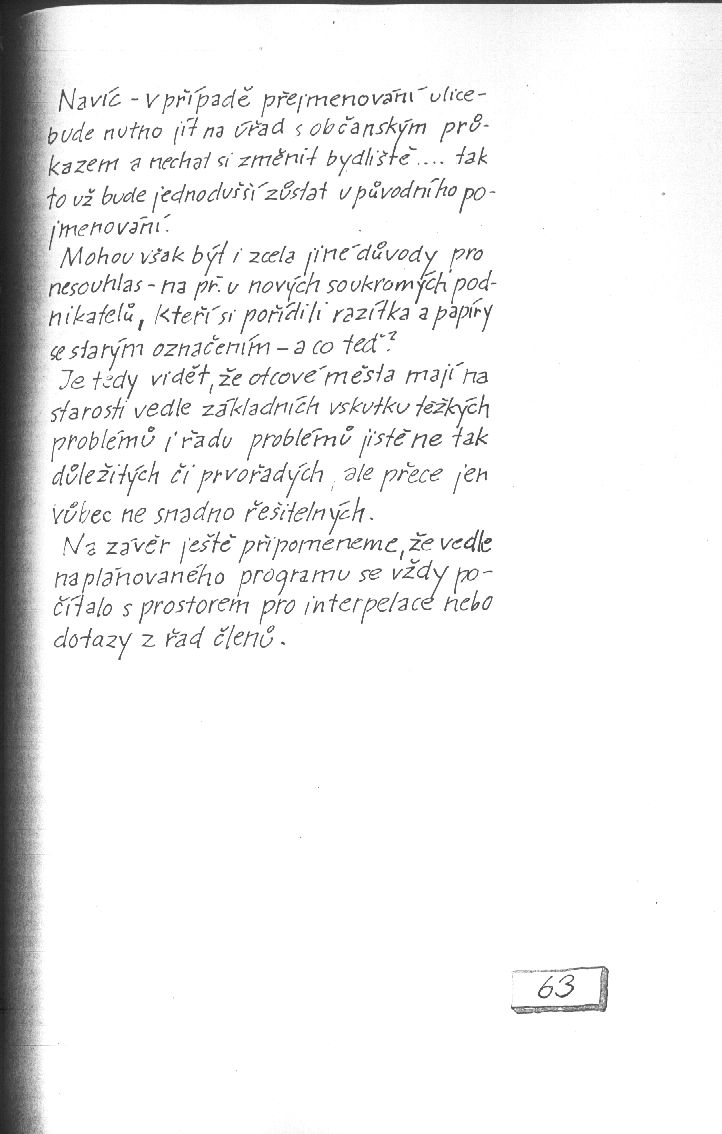 Navíc - v případě přejmenování ulice-
bude nutno jít na úřad s občanským prů-
kazem a nechat si změnit bydliště.... tak
to už bude jednodušší zůstat u původního po-
jmenování.
Mohou však být i zcela jiné důvody pro
nesouhlas - na př. u nových soukromých pod-
nikatelů, kteří si pořídili razítka a papíry
se starým označením - a co teď?
Je tedy vidět, že otcové města mají na
starosti vedle základních vskutku těžkých
problémů i řadu problémů jistě ne tak
důležitých či prvořadých, ale přece jen
vůbec ne snadno řešitelných.
Na závěr ještě připomeneme, že vedle
naplánovaného programu se vždy po-
čítalo s prostorem pro interpelace nebo
dotazy z řad členů.
63